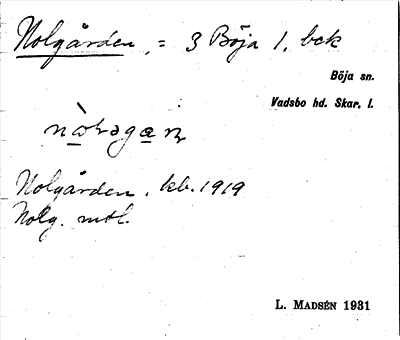 Nolgården, = 3 Böja 1, bek
Böja sn.
Vadsbo hd. Skar. l.
Nolgården, kb. 1919
Nolg. mtl.
L. Madsén 1931